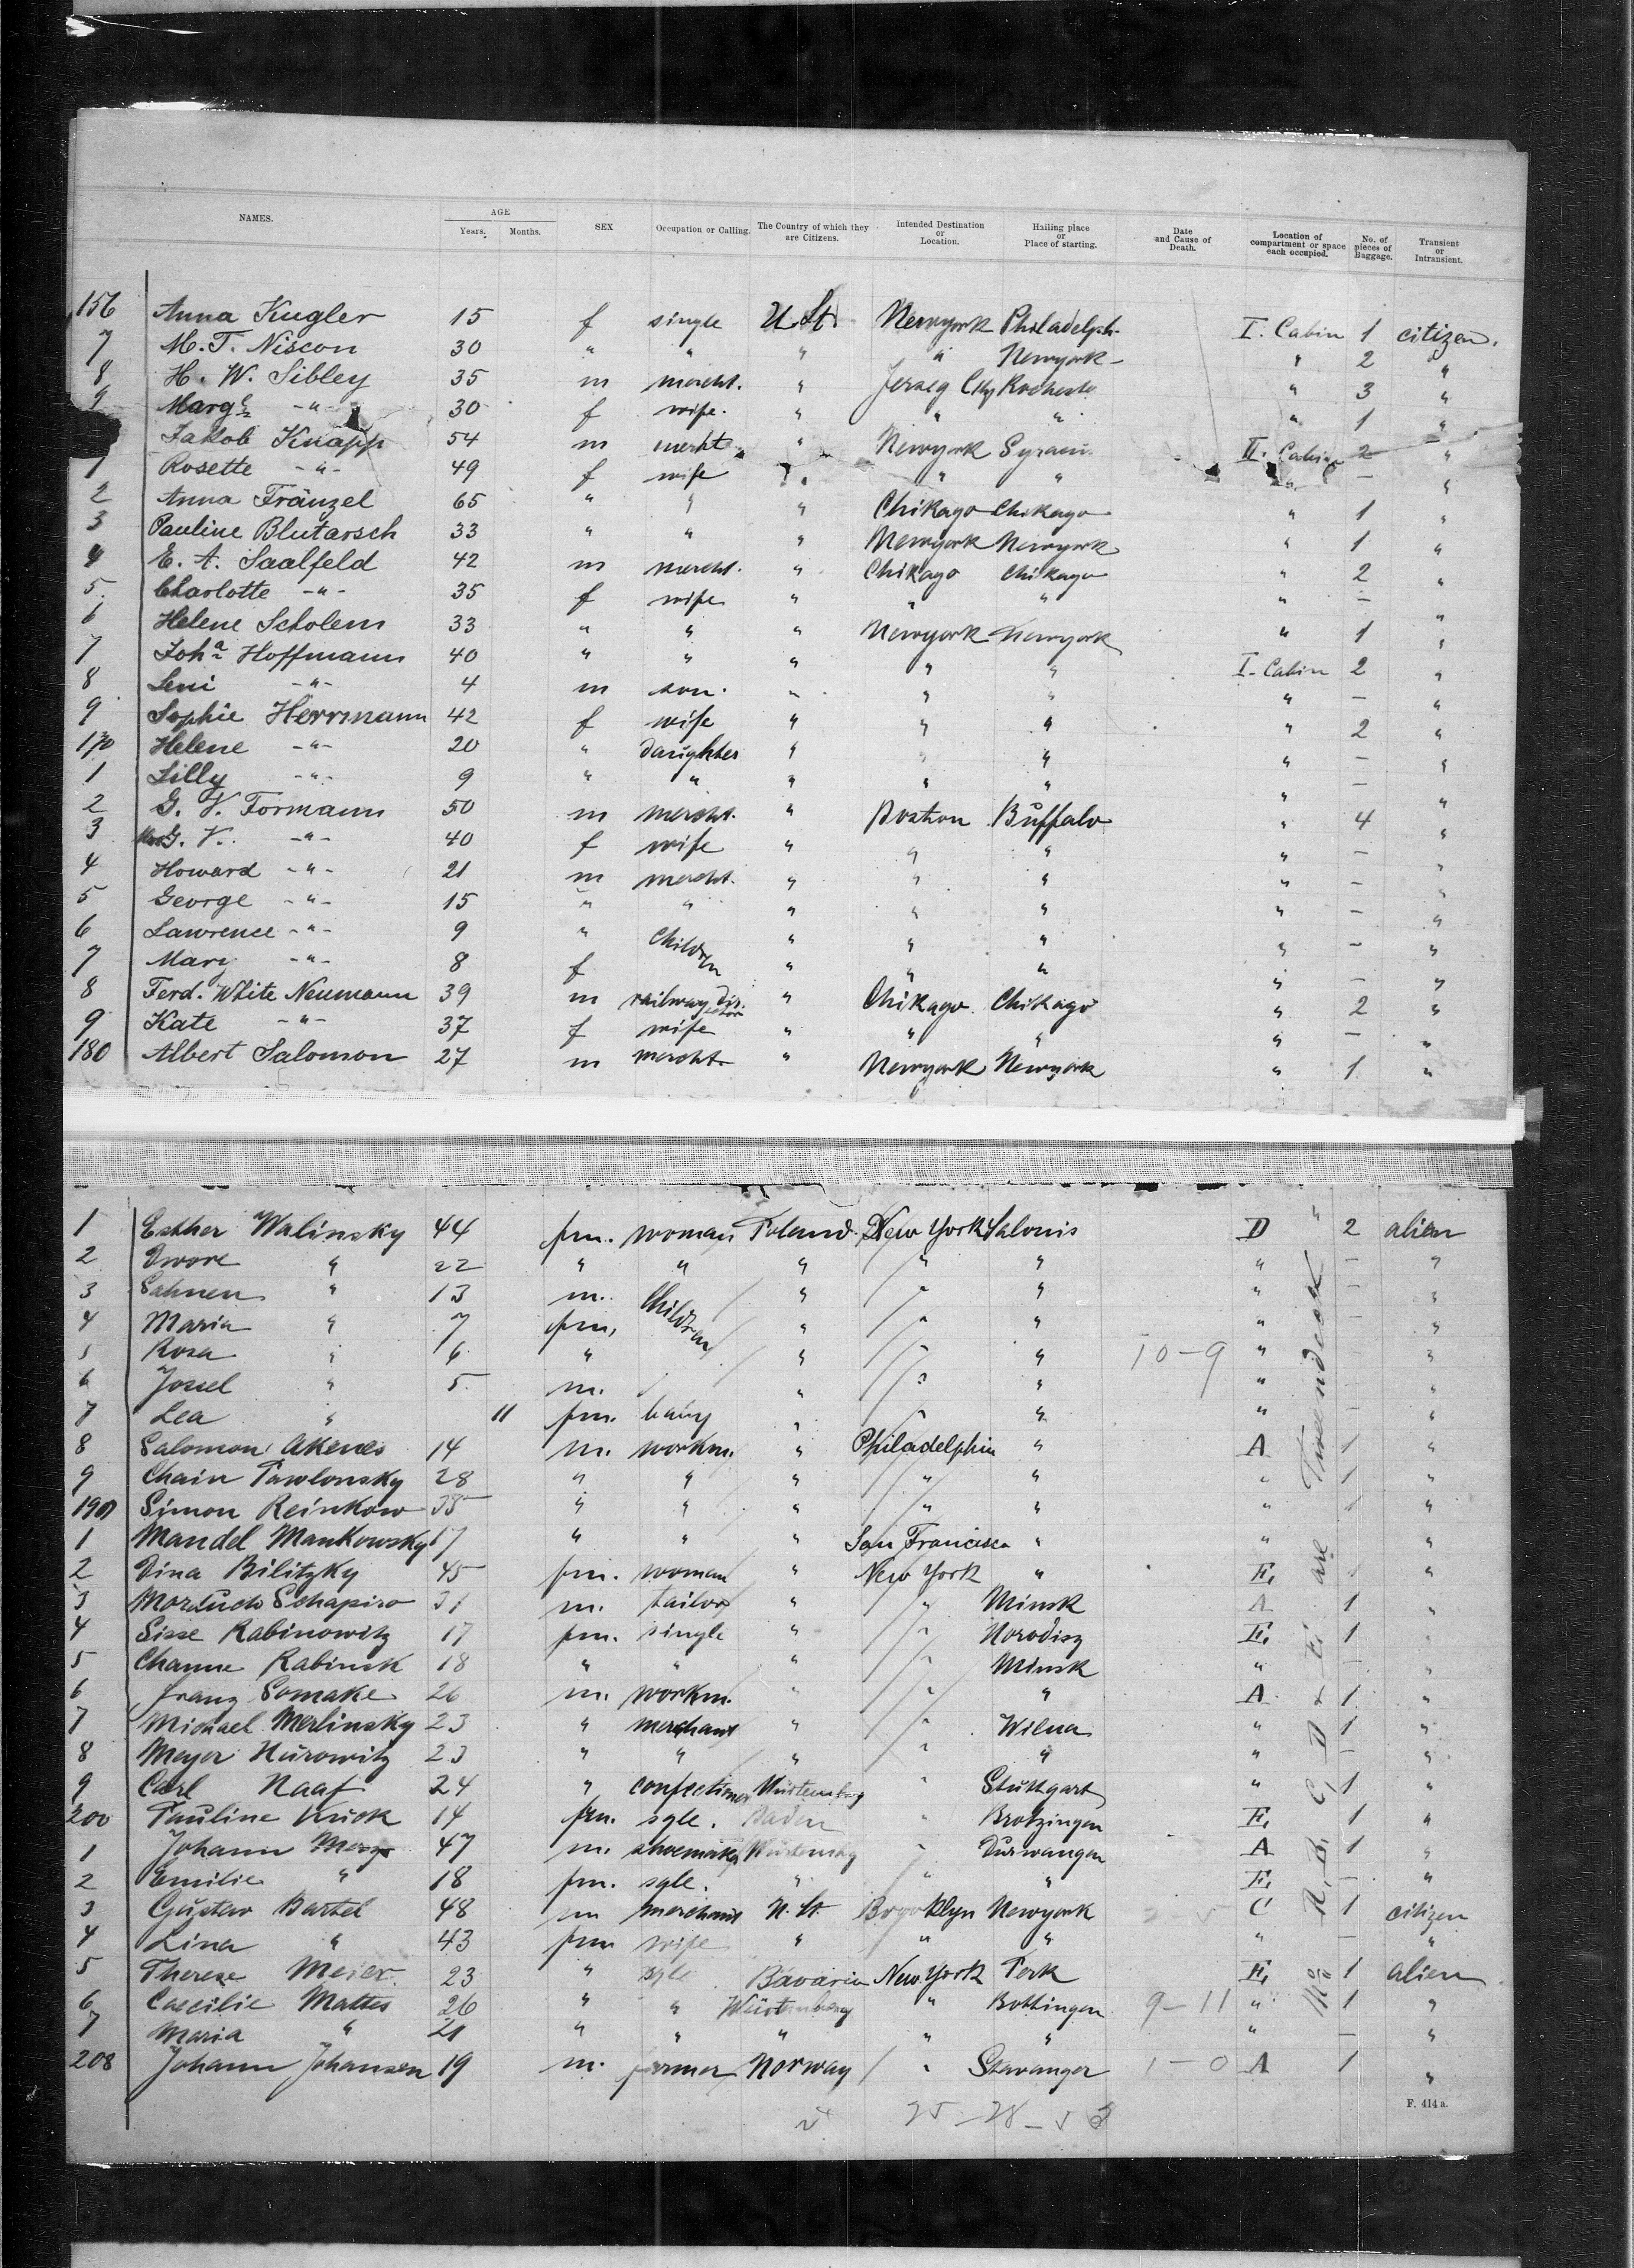 NAMES. AGE Years. Months. SEX Occupation or Calling. The Country of which they are Citizens. Intended Destination or Location. Hailing place or Place of starting. Date and Cause of Death. Location of compartment or space each occupied. No. of pieces of Baggage. Transient or Intransient.
156 Anna Kugler 15 f single U. St. Newyork Philadelph. I. Cabin 1 citizen.
7 M. T. Niscon 30 " " " " Newyork " 2 "
8 H. W. Sibley 35 m mercht. " Jersey City Rochester " 3 "
9 Marg. -"- 30 f wife. " " " " 1 "
Jakob Knapp 54 m mercht. " Newyork II. Cabin 2 "
1 Rosette -"- 49 f wife " " " " — "
2 Anna Fränzel 65 " " " Chikago Chikago " 1 "
3 Pauline Blutarsch 33 " " " Newyork Newyork " 1 "
4 E. A. Saalfeld 42 m mercht. " Chikago Chikago " 2 "
5. Charlotte -"- 35 f wife " " " " — "
6 Helene Scholem 33 " " " Newyork Newyork " 1 "
7 Joha Hoffmann 40 " " " " " I. Cabin 2 "
8 Leni -"- 4 m son. " " " " — "
9 Sophie Herrmann 42 f wife " " " " 2 "
170 Helene -"- 20 " daughter " " " " — "
1 Lilly -"- 9 " " " " " " — "
2 G. V. Formann 50 m mercht. " Boston Buffalo " 4 "
3 Mrs G. V. -"- 40 f wife " " " " — "
4 Howard -"- 21 m mercht. " " " " — "
5 George -"- 15 " " " " " " — "
6 Lawrence -"- 9 " Children " " " " — "
7 Mary -"- 8 f " " " " — "
8 Ferd. White Neumann 39 m railway director " Chikago Chikago " 2 "
9 Kate -"- 37 f wife " " " " — "
180 Albert Salomon 27 m mercht. " Newyork Newyork " 1 "
1 Esther Walinsky 44 fm. woman Poland New York Salonis D " 2 alien
2 Dwore " 22 " " " " " " — "
3 Sahnen " 13 m. Children " " " " — "
4 Maria " 7 fm. " " " " — "
5 Rosa " 6 " " " " 10-9 " — "
6 Jossel " 5 m. " " " " — "
7 Lea " 11 fm. baby " " " " — "
8 Salomon 14 m. workm. " Philadelphia " A 1 "
9 Chain Pawlonsky 28 " " " " " " 1 "
190 Simon Reinkow 35 " " " " " " 1 "
1 Mandel Mankowsky 17 " " " San Francisco " " "
2 Dina Bilitzky 45 fm. woman " New York " E, 1 "
3 Schapiro 31 m. tailor " " Minsk A 1 "
4 Sisse Rabinowitz 17 fm. single " " Horodisz E, 1
5 Channe Rabinsk 18 " " " " Minsk " — "
6 Franz Somake 26 m. workm. " " " A 1 "
7 Michael Merlinsky 23 " merchant " " Wilna " 1 "
8 Meyer Hurowitz 23 " " " " " " — "
9 Carl Naaf 24 " confectioner Würtemberg " Stuttgart " 1 "
200 Pauline Kuck 14 fm. sgle. Baden " Brotzingen E, 1 "
1 Johann 47 m. shoemaker Würtembg " Dürwangen A 1 "
2 Emilie " 18 fm. sgle. " " " E, — "
3 Gustav Bartel 48 m merchant U. St. Brooklyn Newyork C 1 citizen
4 Lina " 43 fm wife " " " " — "
5 Therese Meier 23 " sgle Bavaria New York Perk E, 1 alien
6 Caecilie Mattes 26 " " Würtemberg " Bottingen 9-11 " 1 "
7 Maria " 21 " " " " " " — "
208 Johann Johansen 19 m. farmer Norway " Stavanger 1-0 A 1 "
25-28-53
F. 414 a.